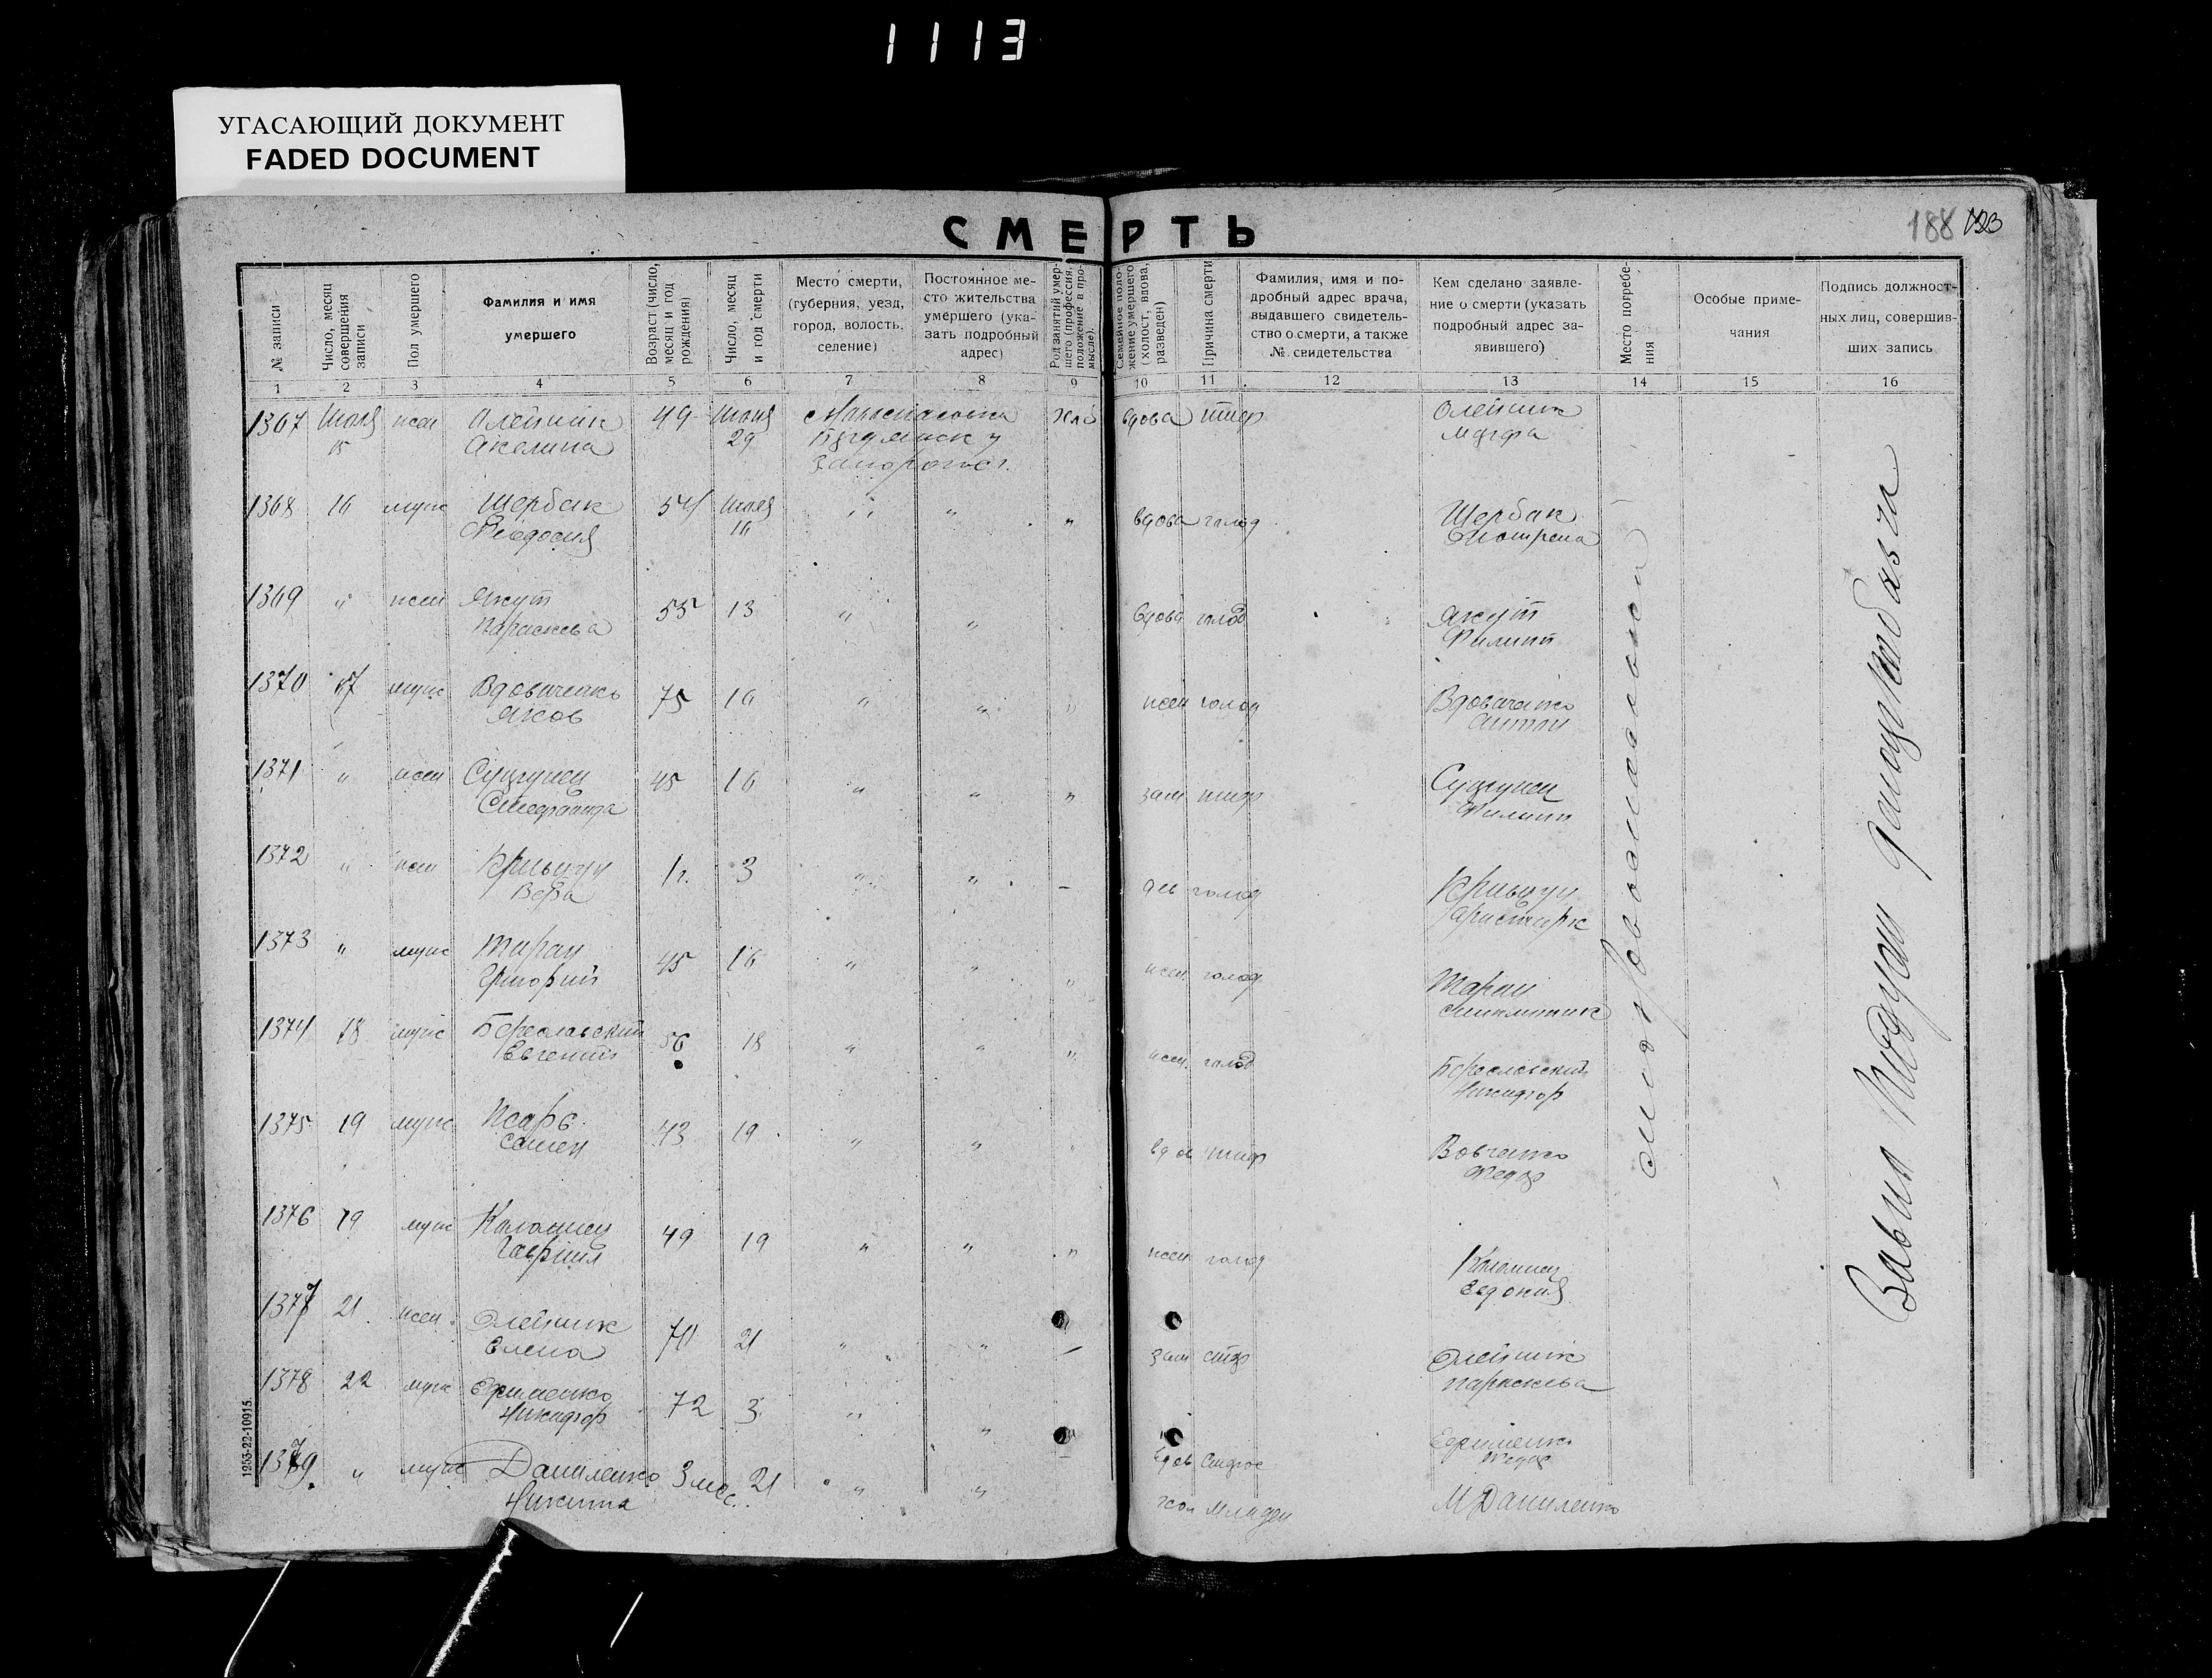 1113
УГАСАЮЩИЙ ДОКУМЕНТ
FADED DOCUMENT
СМЕРТЬ
188
№ записи
Число, месяц совершения записи
Пол умершего
Фамилия и имя умершего
Возраст (число, месяц и год рождения)
Число, месяц и год смерти
Место смерти, (губерния, уезд, город, волость, селение)
Постоянное место жительства умершего (указать подробный адрес)
Род занятий умершего (профессия, положение в промысле).
Семейное положение умершего (холост, вдова, разведен)
Причина смерти
Фамилия, имя и подробный адрес врача, выдавшего свидетельство о смерти, а также № свидетельства
Кем сделано заявление о смерти (указать подробный адрес заявившего)
Место погребения
Особые примечания
Подпись должностных лиц, совершивших запись
1 2 3 4 5 6 7 8 9 10 11 12 13 14 15 16
1367 Июля 15 жен Олейник Акелина 49 29 вдова тиф Олейник Марфа
1368 16 муж Щербак Феодосия 54 Июля 16 " " " вдова голод Щербак
1369 " жен Якут Параскева 55 13 " " вдова голод Якут Филипп
1370 17 муж Вдовиченко Яков 75 16 " " " жен голод Вдовиченко Антон
1371 " жен 45 16 " " " зам тиф Филипп
1372 " жен Вера 1 г. 3 " " – голод Аристарх
1373 " муж Таран Григорий 45 16 " " " жен голод Таран
1374 18 муж Береславский Евгений 56 18 " " " жен. голод Береславский Никифор
1375 19 муж Семен 43 19 " " " вдов тиф Вовченко Федор
1376 19 муж Коломиец Гавриил 49 19 " " " жен голод Коломиец Евдокия
1377 21 жен. Олейник Елена 70 21 " " – зам Олейник Параскева
1378 22 муж Ефименко Никифор 72 3 " " " вдов Ефименко Федор
1379. " муж Даниленко Никита 3 мес. 21 " " хол младен М Даниленко
1253-22-10915.